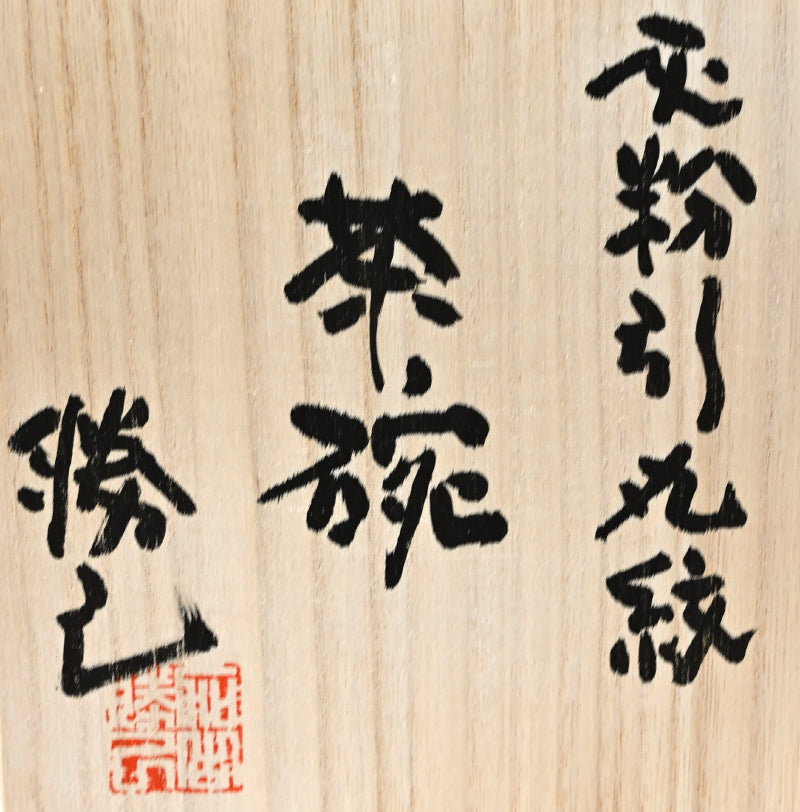 灰粉引丸紋
茶碗
勝己